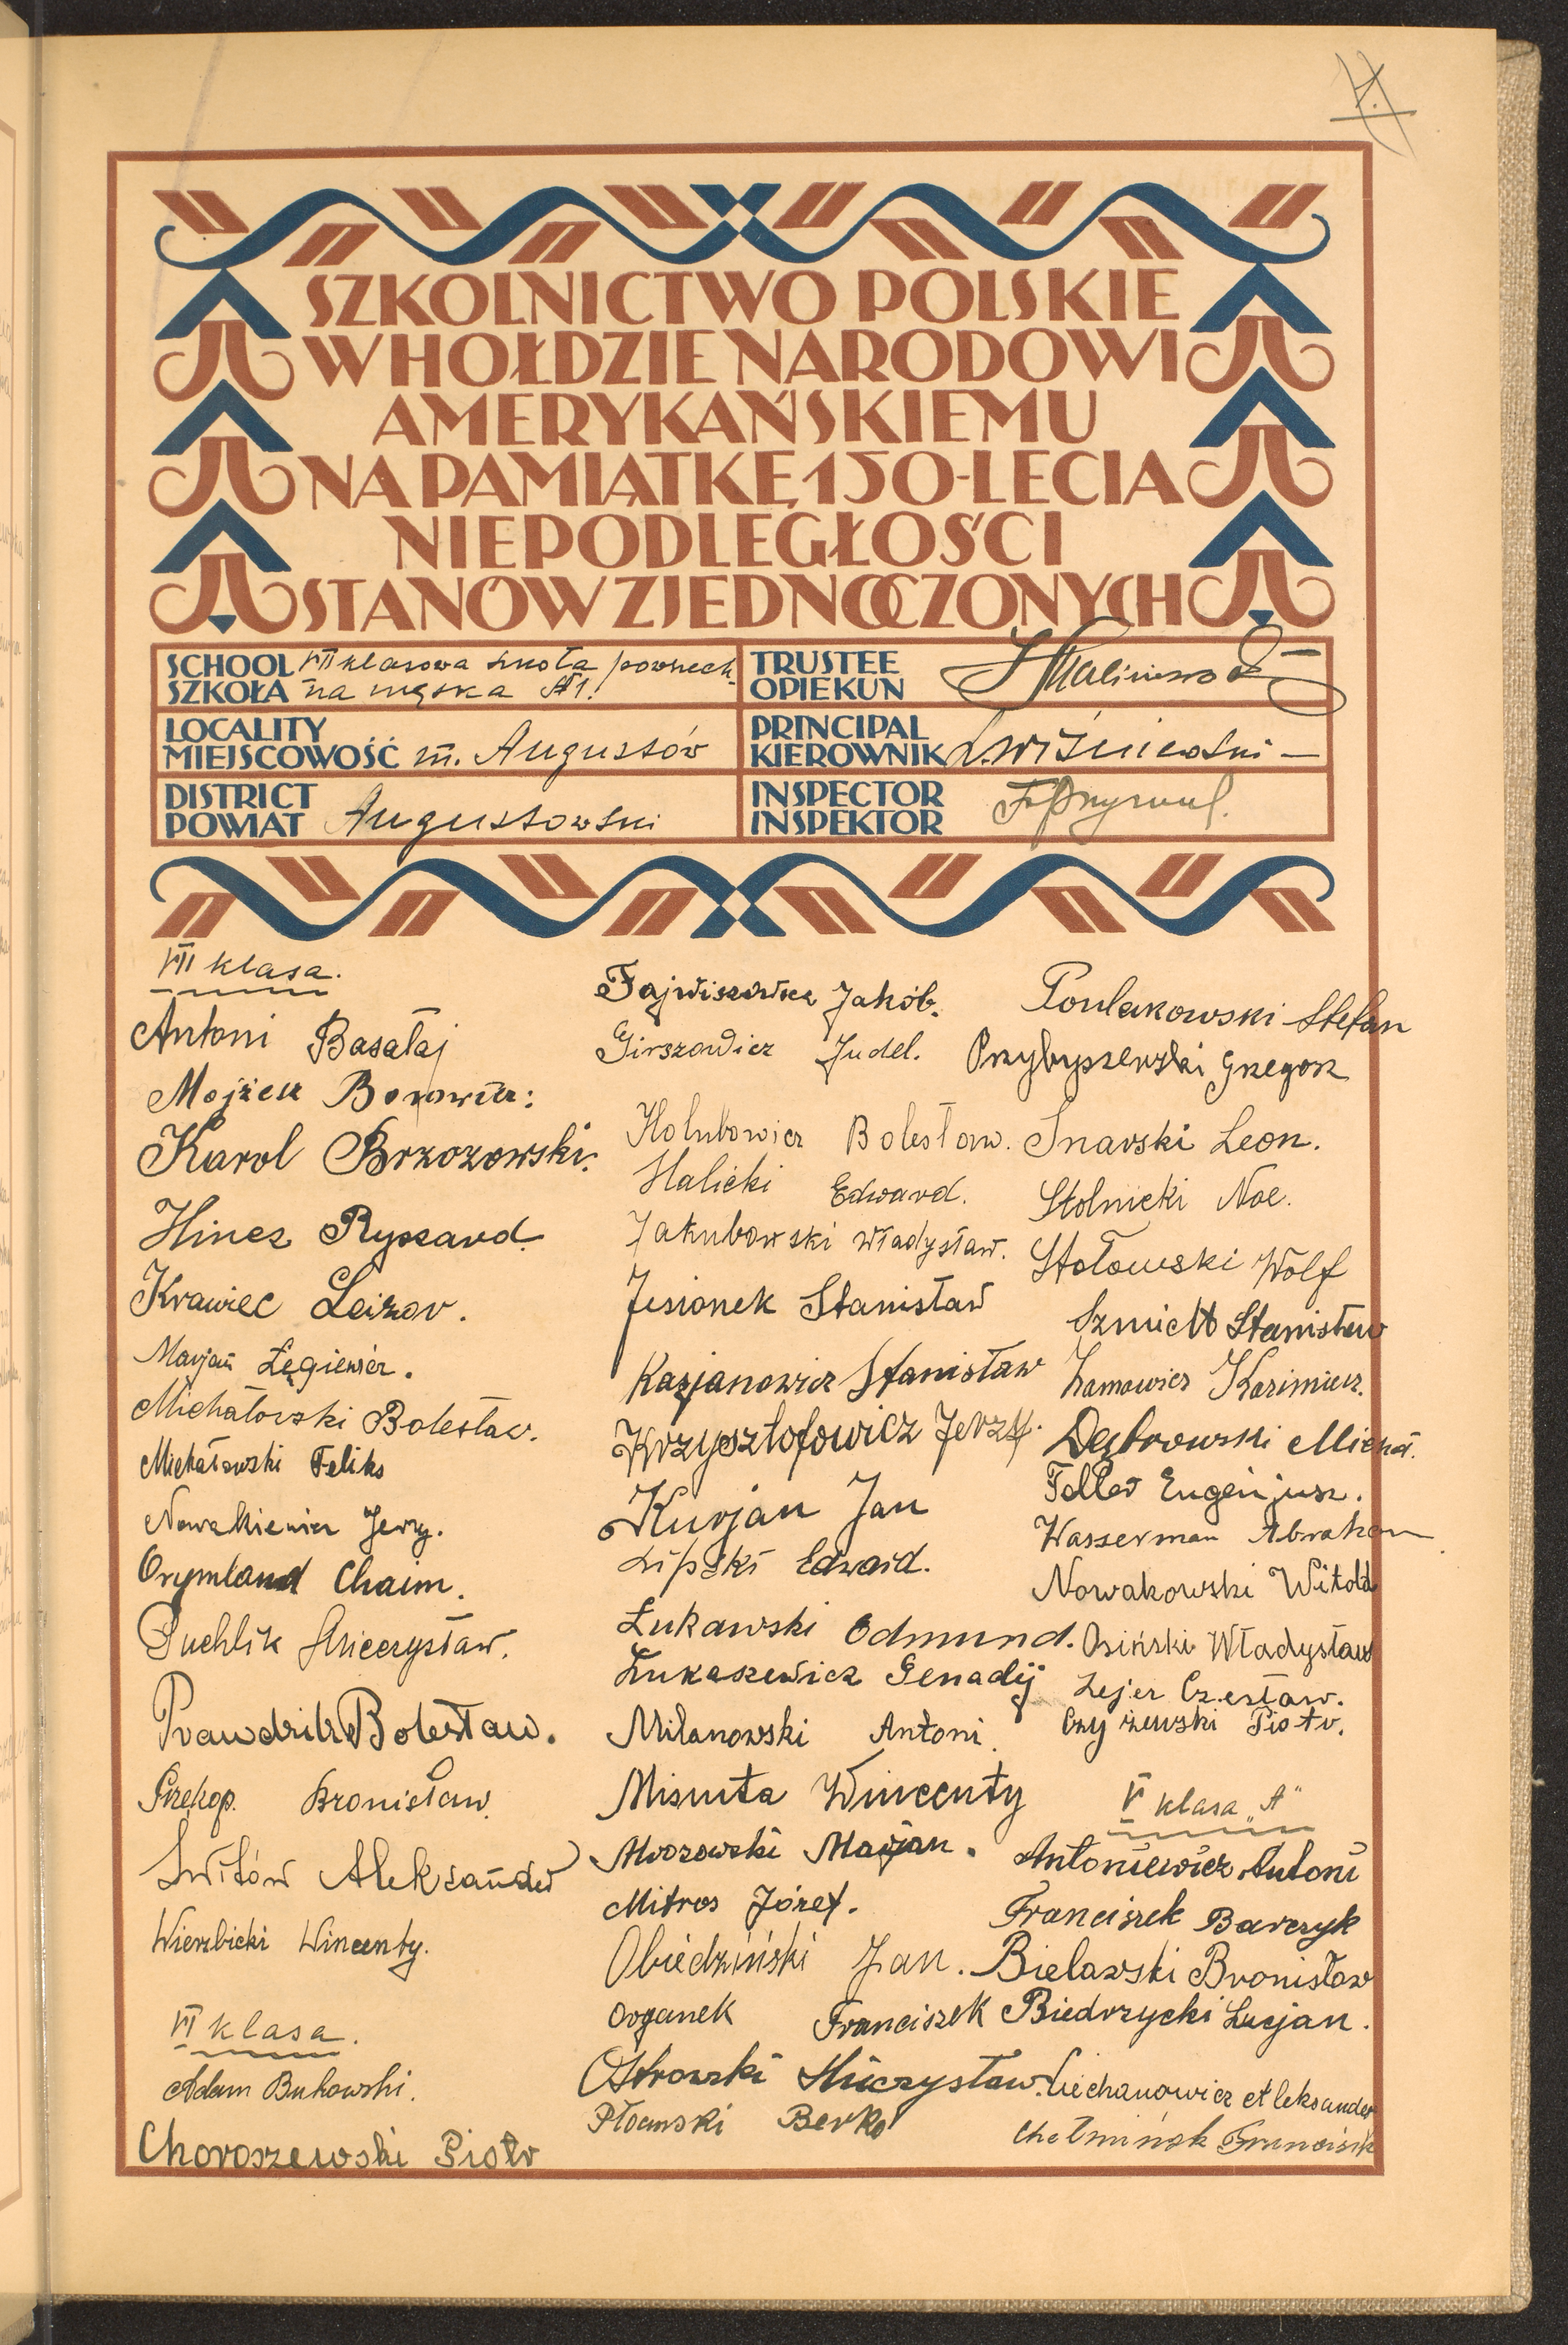 SZKOLNICTWO POLSKIE
W HOŁDZIE NARODOWI
AMERYKAŃSKIEMU
NA PAMIĄTKĘ 150-LECIA
NIEPODLEGŁOŚCI
STANÓW ZJEDNOCZONYCH
SCHOOL VII klasowa szkoła powszech-
SZKOŁA na męska №1.
TRUSTEE
OPIEKUN
LOCALITY
MIEJSCOWOŚĆ m. Augustów
PRINCIPAL
KIEROWNIK Wiśniewski
DISTRICT
POWIAT Augustowski
INSPECTOR
INSPEKTOR
VII klasa.
Antoni Basałaj
Mojżesz Borowicz:
Karol Brzozowski.
Hincz Ryszard.
Krawiec Leizor.
Marjan Łęgiewicz.
Michałowski Bolesław.
Michałowski Feliks
Nowalkiewicz Jerzy.
Orymland Chaim.
Puchlik Mieczysław.
Prawdzik Bolesław.
Przekop. Bronisław.
Świtów Aleksander
Wierzbicki Wincenty.
VI klasa.
Adam Bukowski.
Choroszewski Piotr
Jakób.
Girszowicz Judel.
Hołubowicz Bolesław.
Halicki Edward.
Jakubowski Władysław.
Jesionek Stanisław
Kasjanowicz Stanisław
Krzysztofowicz Jerzy.
Kurjan Jan
Lipski Edward.
Łukawski Edmund.
Łukaszewicz Genadij
Milanowski Antoni.
Misiuta Wincenty
Mrozowski Marjan.
Mitros Józef.
Obiedziński Jan.
Organek Franciszek
Ostrowski Mieczysław.
Płoański Berko
Poulakowski Stefan
Przybyszewski Grzegorz
Snarski Leon.
Stolnicki Noe.
Stołowski Wolf
Szmidt Stanisław
Zamowicz Kazimierz.
Dąbrowski Michał.
Feller Eugenjusz.
Wasserman Abraham
Nowakowski Witold
Osiński Władysław
Lejer Czesław.
Czyżewski Piotr.
V klasa „A"
Antoniewicz Antoni
Franciszek Barczyk
Bielawski Bronisław
Biedrzycki Lucjan.
Ciechanowicz Aleksander
Chełmińsk Franciszek